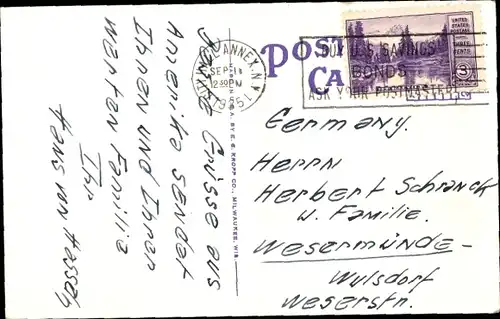 Beste Grüsse aus
Amerika sendet
Ihnen und Ihrer
werten Familie
Ihr
Hans von
C. KROPP CO., MILWAUKEE, WIS.
ANNEX, N.Y.
SEP 11
12 30 PM
195
POST
CA
BUY U.S. SAVINGS
BONDS
ASK YOUR POSTMASTER
UNITED
STATES
POSTAGE
THREE
CENTS
3
Germany.
HERRN
Herbert Schranck
u. Familie.
Wesermünde-
Wulsdorf
Weserstr.